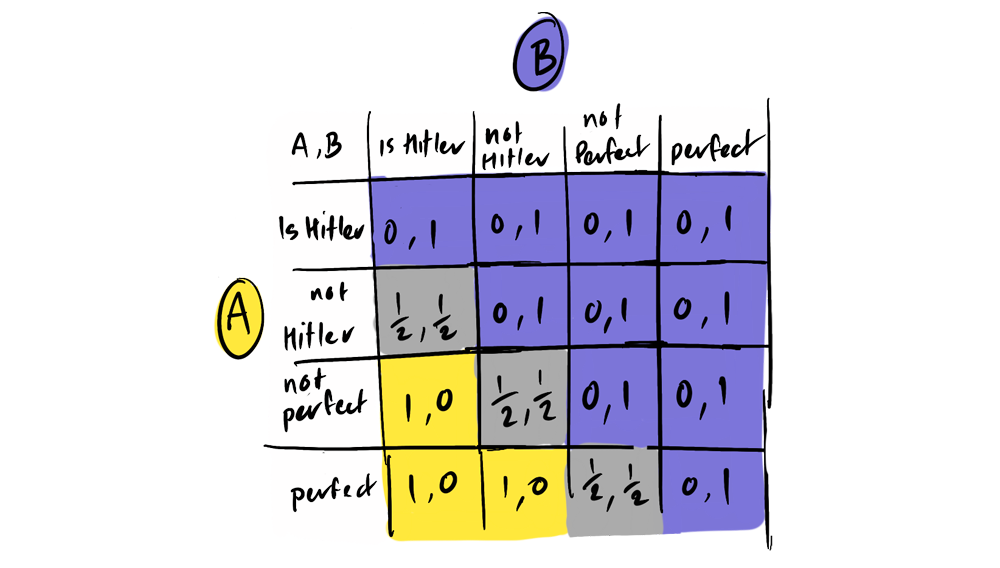 B
A,B is Hitler not Hitler not Perfect perfect
Is Hitler 0,1 0,1 0,1 0,1
not Hitler 1/2,1/2 0,1 0,1 0,1
not perfect 1,0 1/2,1/2 0,1 0,1
perfect 1,0 1,0 1/2,1/2 0,1
A